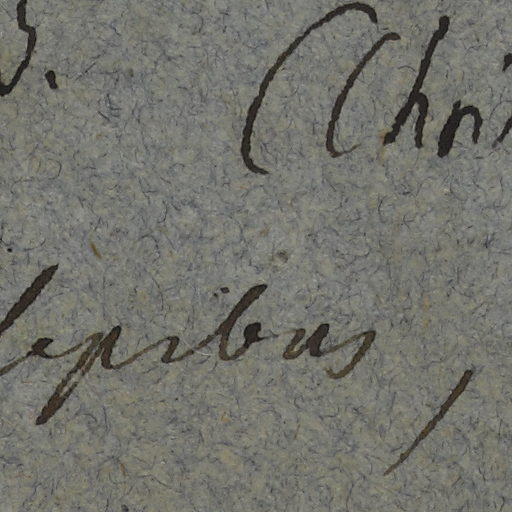 3. (Chri
Vepribus,